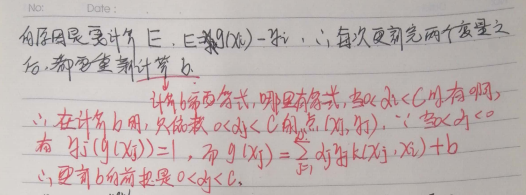 No:  Date:
的原因是要计算E, E=g(xi)-yi, ∴每次更新完两个变量之
后, 都要重新计算b.
计算b需要等式, 哪里有等式, 当0<αi<C时有啊,
∴在计算b时, 只能取0<αj<C的点(xj, yj). ∵当0<αj<0
有 yj(g(xj))=1, 而 g(xj)=∑αjyjk(xj, xi)+b
∴更新b的前提是0<αj<C.